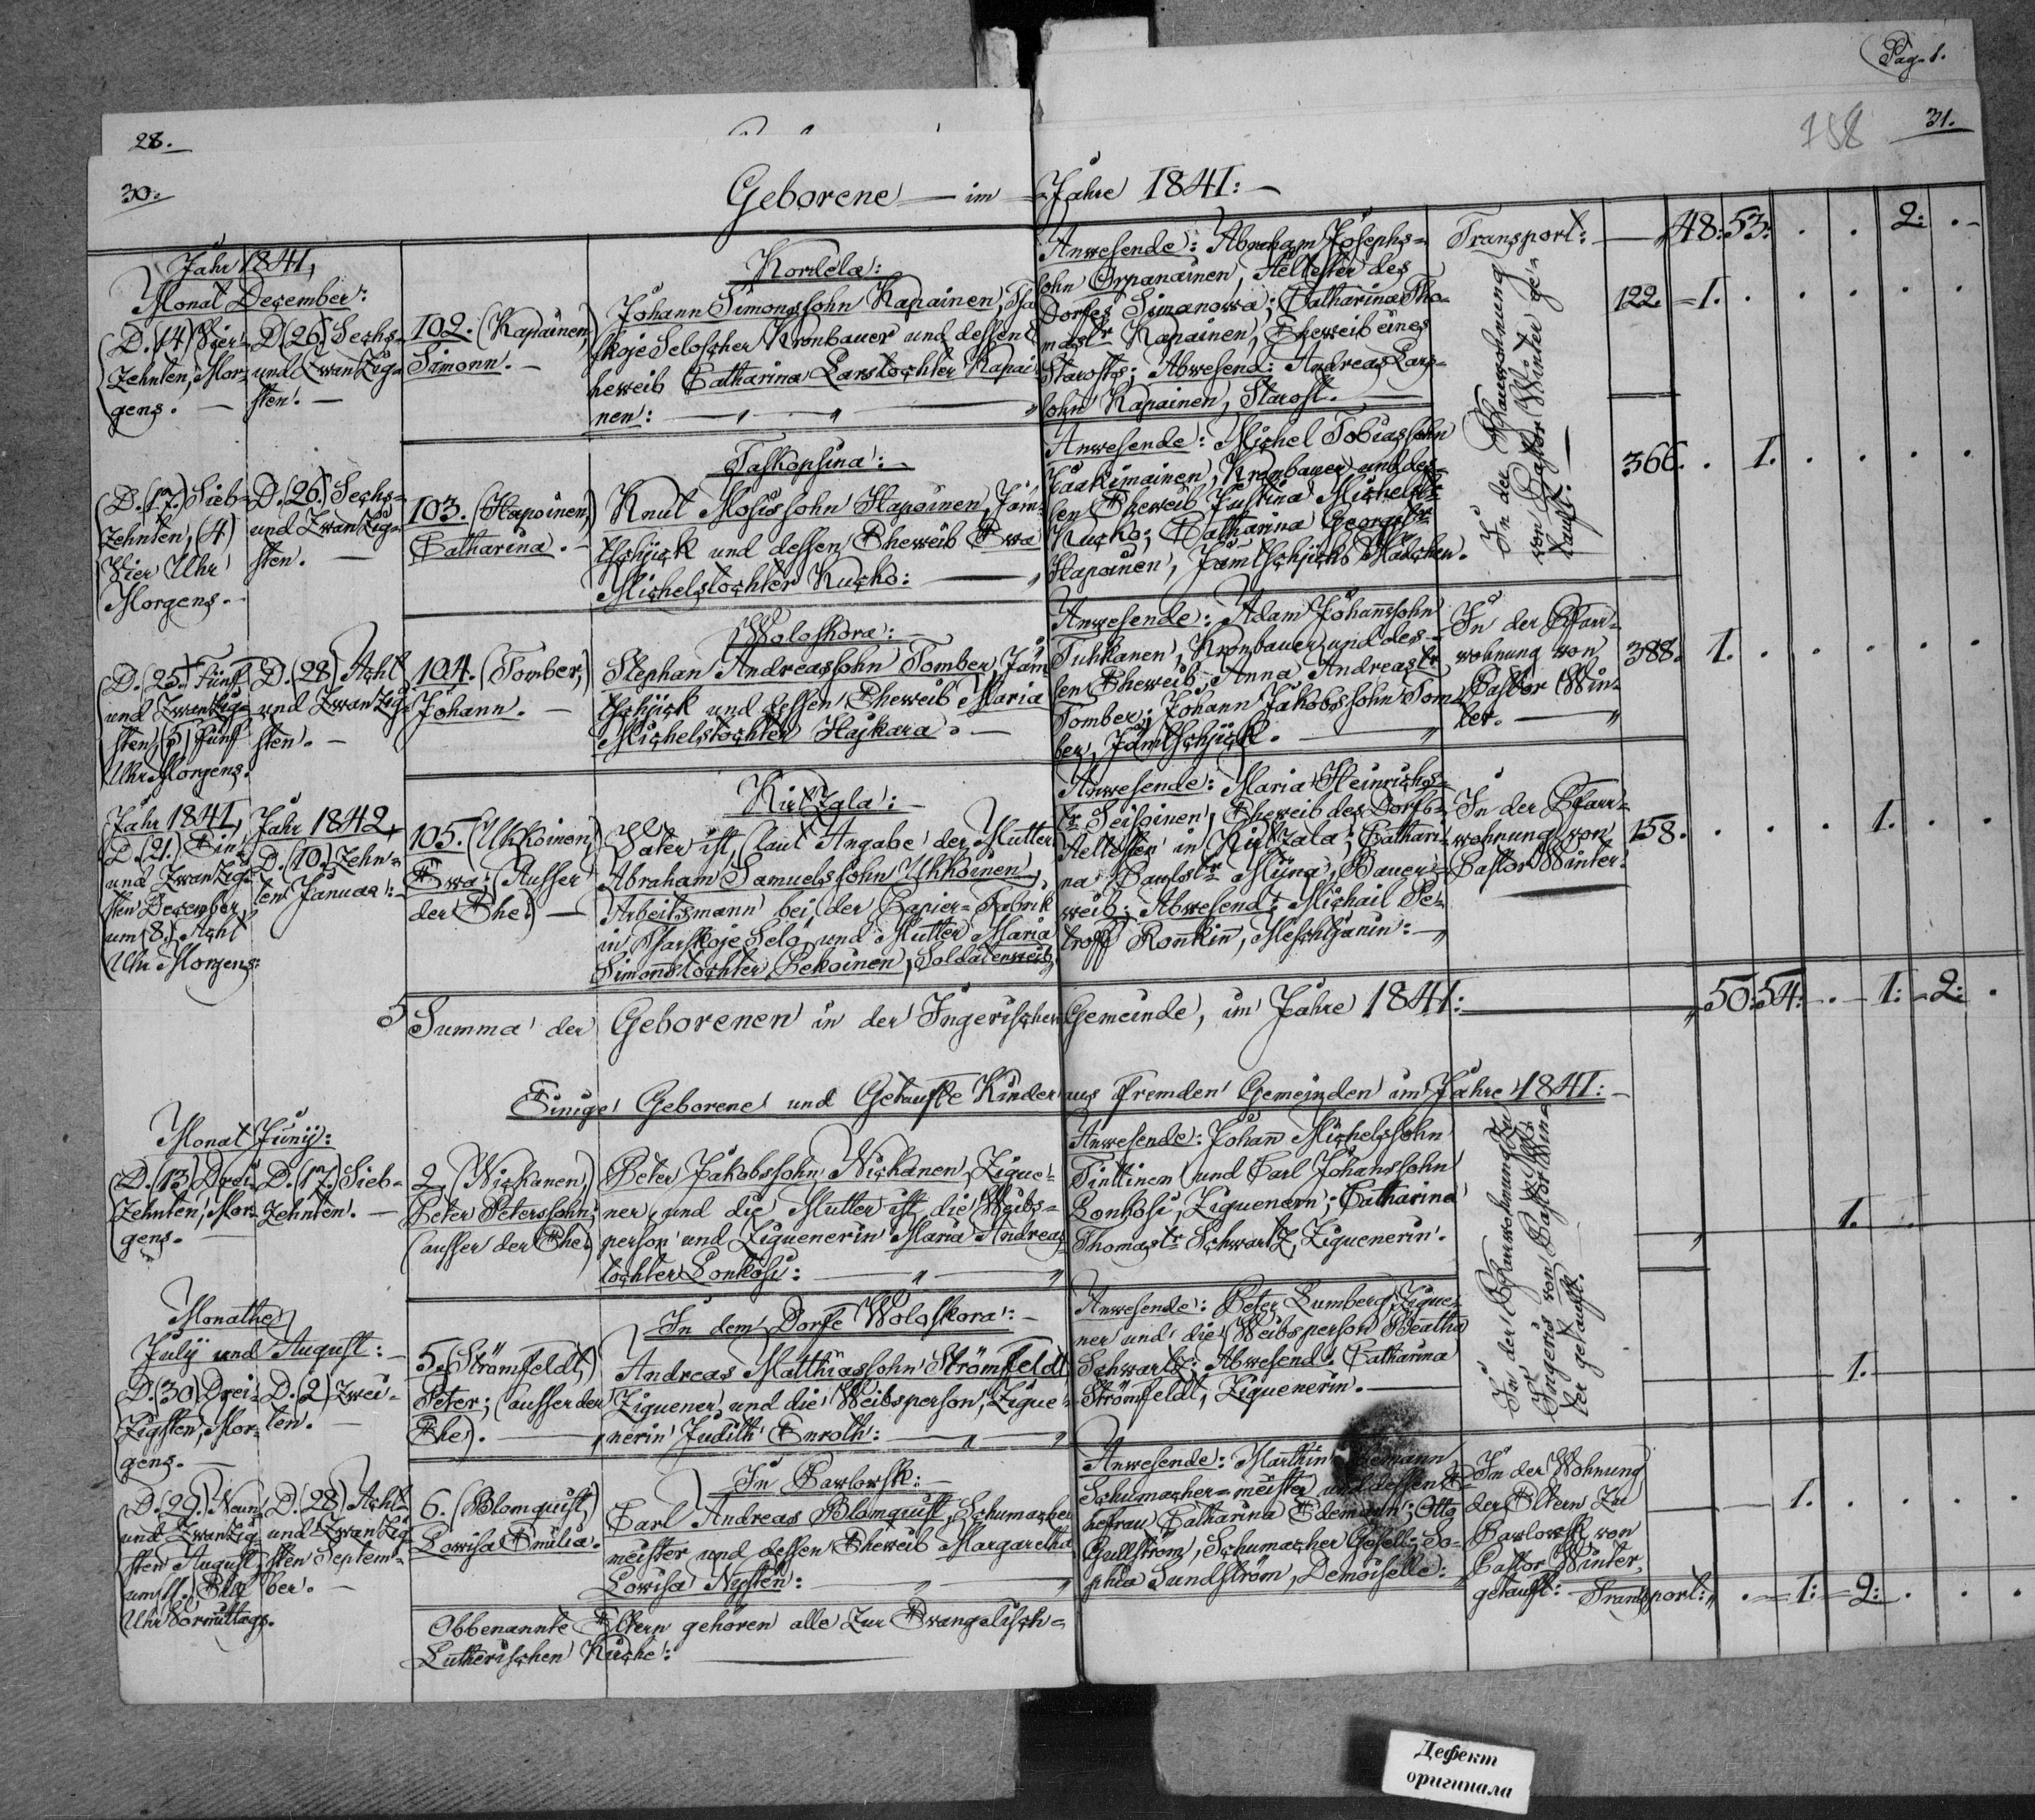 Pag. 1.
28.
158
31.
30.
Geborene — im — Jahre 1841: —
Jahr 1841,
Monat December:
D. (14) Vier-
zehnten, Mor-
gens. —
D. (26) Sechs-
und zwanzig-
sten. —
102. (Kapainen,)
Simonn. —
Kordela:
Johann Simonssohn Kapainen, Tsa
skoje Seloscher Kronbauer und dessen
heweib Catharina Larstochter Kapai-
nen: —
Anwesende: Abraham Josephs-
sohn Orpanainen, Aeltester des
Dorfes Simanowa; Catharina Tho-
mastr Kapainen, Eheweib eines
Starosts; Abwesend: Andreas Lars-
sohn Kapainen, Starost. —
Transport: — 48: 53: . . 2: . -
In der Pfarrwohnung
von Pastor Winter ge-
tauft. —
122. 1. . . . . .
(D. (17.) Sieb-
zehnten, (4)
Vier Uhr
Morgens. -
D. (26.) Sechs-
und zwanzig-
sten. —
103. (Hapoinen,)
Catharina. -
Taskopsina: -
Knut Mosissohn Hapoinen, Jäm-
tschjick und dessen Eheweib Ewa
Michelstochter Kucko: —
Anwesende: Michel Tobiassohn
Jaakimainen, Kronbauer und des-
sen Eheweib Justina Michelstr
Kucko; Catharina Georgstr
Hapoinen, Jämtschjicks Mädchen.
366. . 1. . . . .
D. (25.) Fünf
und zwanzig-
sten, (5) fünf
Uhr Morgens.
D. (28) Acht
und zwanzig-
sten. —
104. (Tomber,)
Johann. —
Woloskora: -
Stephan Andreassohn Tomber, Jäm
tschjick und dessen Eheweib Maria
Michelstochter Hajkara. —
Anwesende: Adam Johannssohn
Tuhkanen, Kronbauer und des-
sen Eheweib, Anna Andreastr
Tomber; Johann Jakobssohn Tom-
ber, Jämtschjick. —
In der Pfarr-
wohnung von
Pastor Win-
ter. —
388. 1. . . . . .
Jahr 1841,
D. (21.) Ein
und zwanzig-
sten December
um (8.) Acht
Uhr Morgens:
Jahr 1842,
D. (10.) Zehn-
ten Januar: -
105. (Ukkoinen,)
Ewa; (Ausser
der Ehe) —
Kirlzala: -
Vater ist, (laut Angabe der Mutter
Abraham Samuelssohn Ukkoinen,
Arbeitsmann bei der Papier-Fabrik
in Tsarskoje Selo, und Mutter Maria
Simonstochter Pekoinen, Soldatenweib,
Anwesende: Maria Heinrichs-
tr Seisoinen, Eheweib des Dorfs-
Aeltesten in Kirlzala; Cathari-
na Paulstr Müna, Bauer-
weib; Abwesend: Michail Pe-
troff Ronnkin, Meschtjanin: —
In der Pfarr-
wohnung von
Pastor Winter.
158. . . . 1. . .
5 Summa der Geborenen in der Ingerischen Gemeinde, im Jahre 1841: — 50: 54: . - 1: - 2: .
Einige Geborene und Getaufte Kinder aus fremden Gemeinden im Jahre 1841: -
Monat Junij:
D. (13) Drei-
zehnten, Mor-
gens. —
D. (17.) Sieb-
zehnten. —
2. (Nickanen,)
Peter Peterssohn;
(ausser der Ehe)
Peter Jakobssohn Nickanen, Zigue-
ner, und die Mutter ist die Weibs-
person und Ziguenerin Maria Andreas
tochter Lonkosi: —
Anwesende: Johann Michelssohn
Tinttinen und Carl Johanssohn
Lonkosi, Ziguenern; Catharina
Thomastr Schwartz, Ziguenerin.
In der Pfarrwohnung zu
Ingeris von Pastor Win-
ter getauft.
1.
Monathe
July und August: -
D. (30) Drei-
zigsten, Mor-
gens. —
D. (2) Zwei-
ten. —
5. (Strömfeldt,)
Peter; (ausser der
Ehe). —
In dem Dorfe Woloskora: -
Andreas Matthiassohn Strömfeldt
Ziguener, und die Weibsperson, Zigue-
nerin Judith Enroth: —
Anwesende: Peter Lumberg, Zigue-
ner und die Weibsperson Beatha
Schwartz; Abwesend: Catharina
Strömfeldt, Ziguenerin. —
1.
D. (29.) Neun
und zwanzig-
sten August
um 11. Elf
Uhr Vormittags.
D. (28) Acht
und zwanzig
sten Septem-
ber. —
6. (Blomquist,)
Lowisa Emilia.
In Pawlowsk: -
Carl Andreas Blomquist, Schumacher
meister und dessen Eheweib Margaretha
Lowisa Nystén: —
Anwesende: Marthin
Schumacher-meister und dessen E-
hefrau Catharina Edemann; Otto
Gullström, Schumacher Gesell; So-
phia Sundström, Demoiselle:
In der Wohnung
der Eltern zu
Pawlowsk von
Pastor Winter,
getauft: — Transport: . - 1: - 2: . . .
1. . . . .
Obbenannte Eltern gehören alle zur Evangelisch-
Lutherischen Kirche: —
Дефект
оригинала